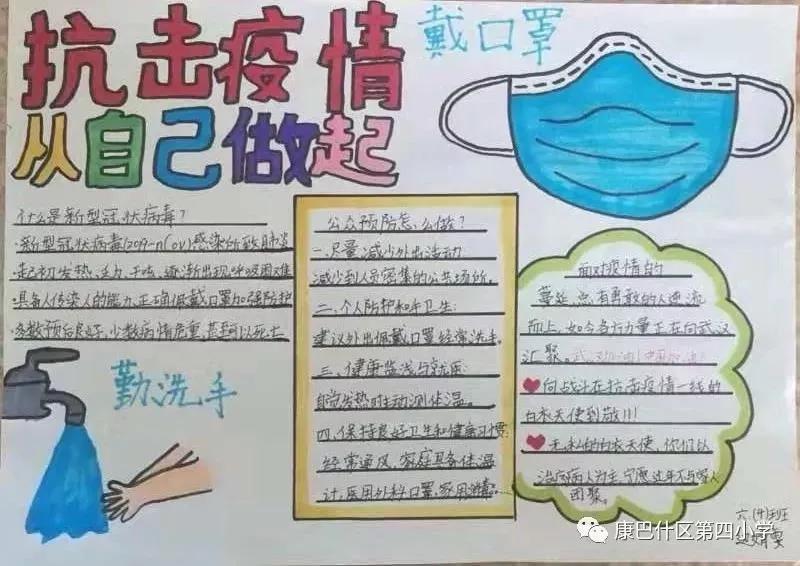 抗击疫情
从自己做起
戴口罩
什么是新型冠状病毒?
·新型冠状病毒(2019-nCoV)感染所致肺炎
·起初发热、乏力、干咳、逐渐出现呼吸困难
·具备人传染人的能力,正确佩戴口罩加强防护
·多数预后良好,少数病情危重,甚至可以死亡
勤洗手
公众预防怎么做?
一、尽量减少外出活动
减少到人员密集的公共场所。
二、个人防护和手卫生:
建议外出佩戴口罩经常洗手。
三、健康监浅与就医:
自觉发热时主动测体温。
四、保持良好卫生和健康习惯:
经常通风、家庭具备体温
计、医用外科口罩、家用消毒
面对疫情的
蔓延,总有勇敢的人逆流
而上,如今各方力量正在向武汉
汇聚。武汉加油!中国加油!
向战斗在抗击疫情一线的
白衣天使到敬!!!
无私的白衣天使,你们以
治疗病人为主,宁愿过年不与家人
团聚。
六、(4)班
康巴什区第四小学